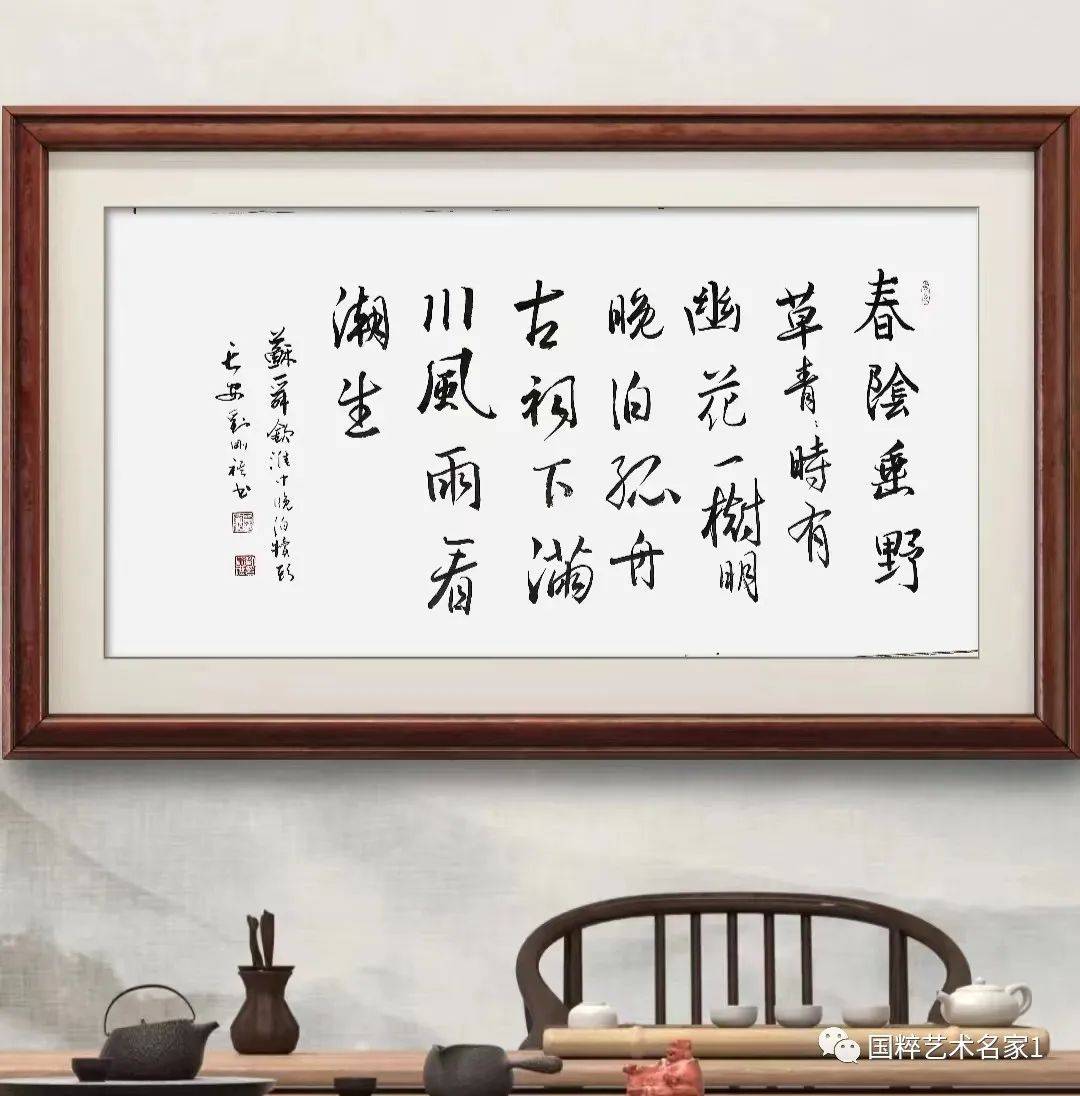 春陰垂野
草青〻時有
幽花一樹明
晚泊孤舟
古祠下滿
川風雨看
潮生
蘇舜欽淮中晚泊犢頭
長安劉剛
國粹艺术名家1